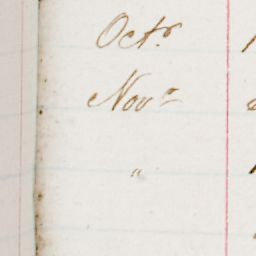 Octr
Novr
"